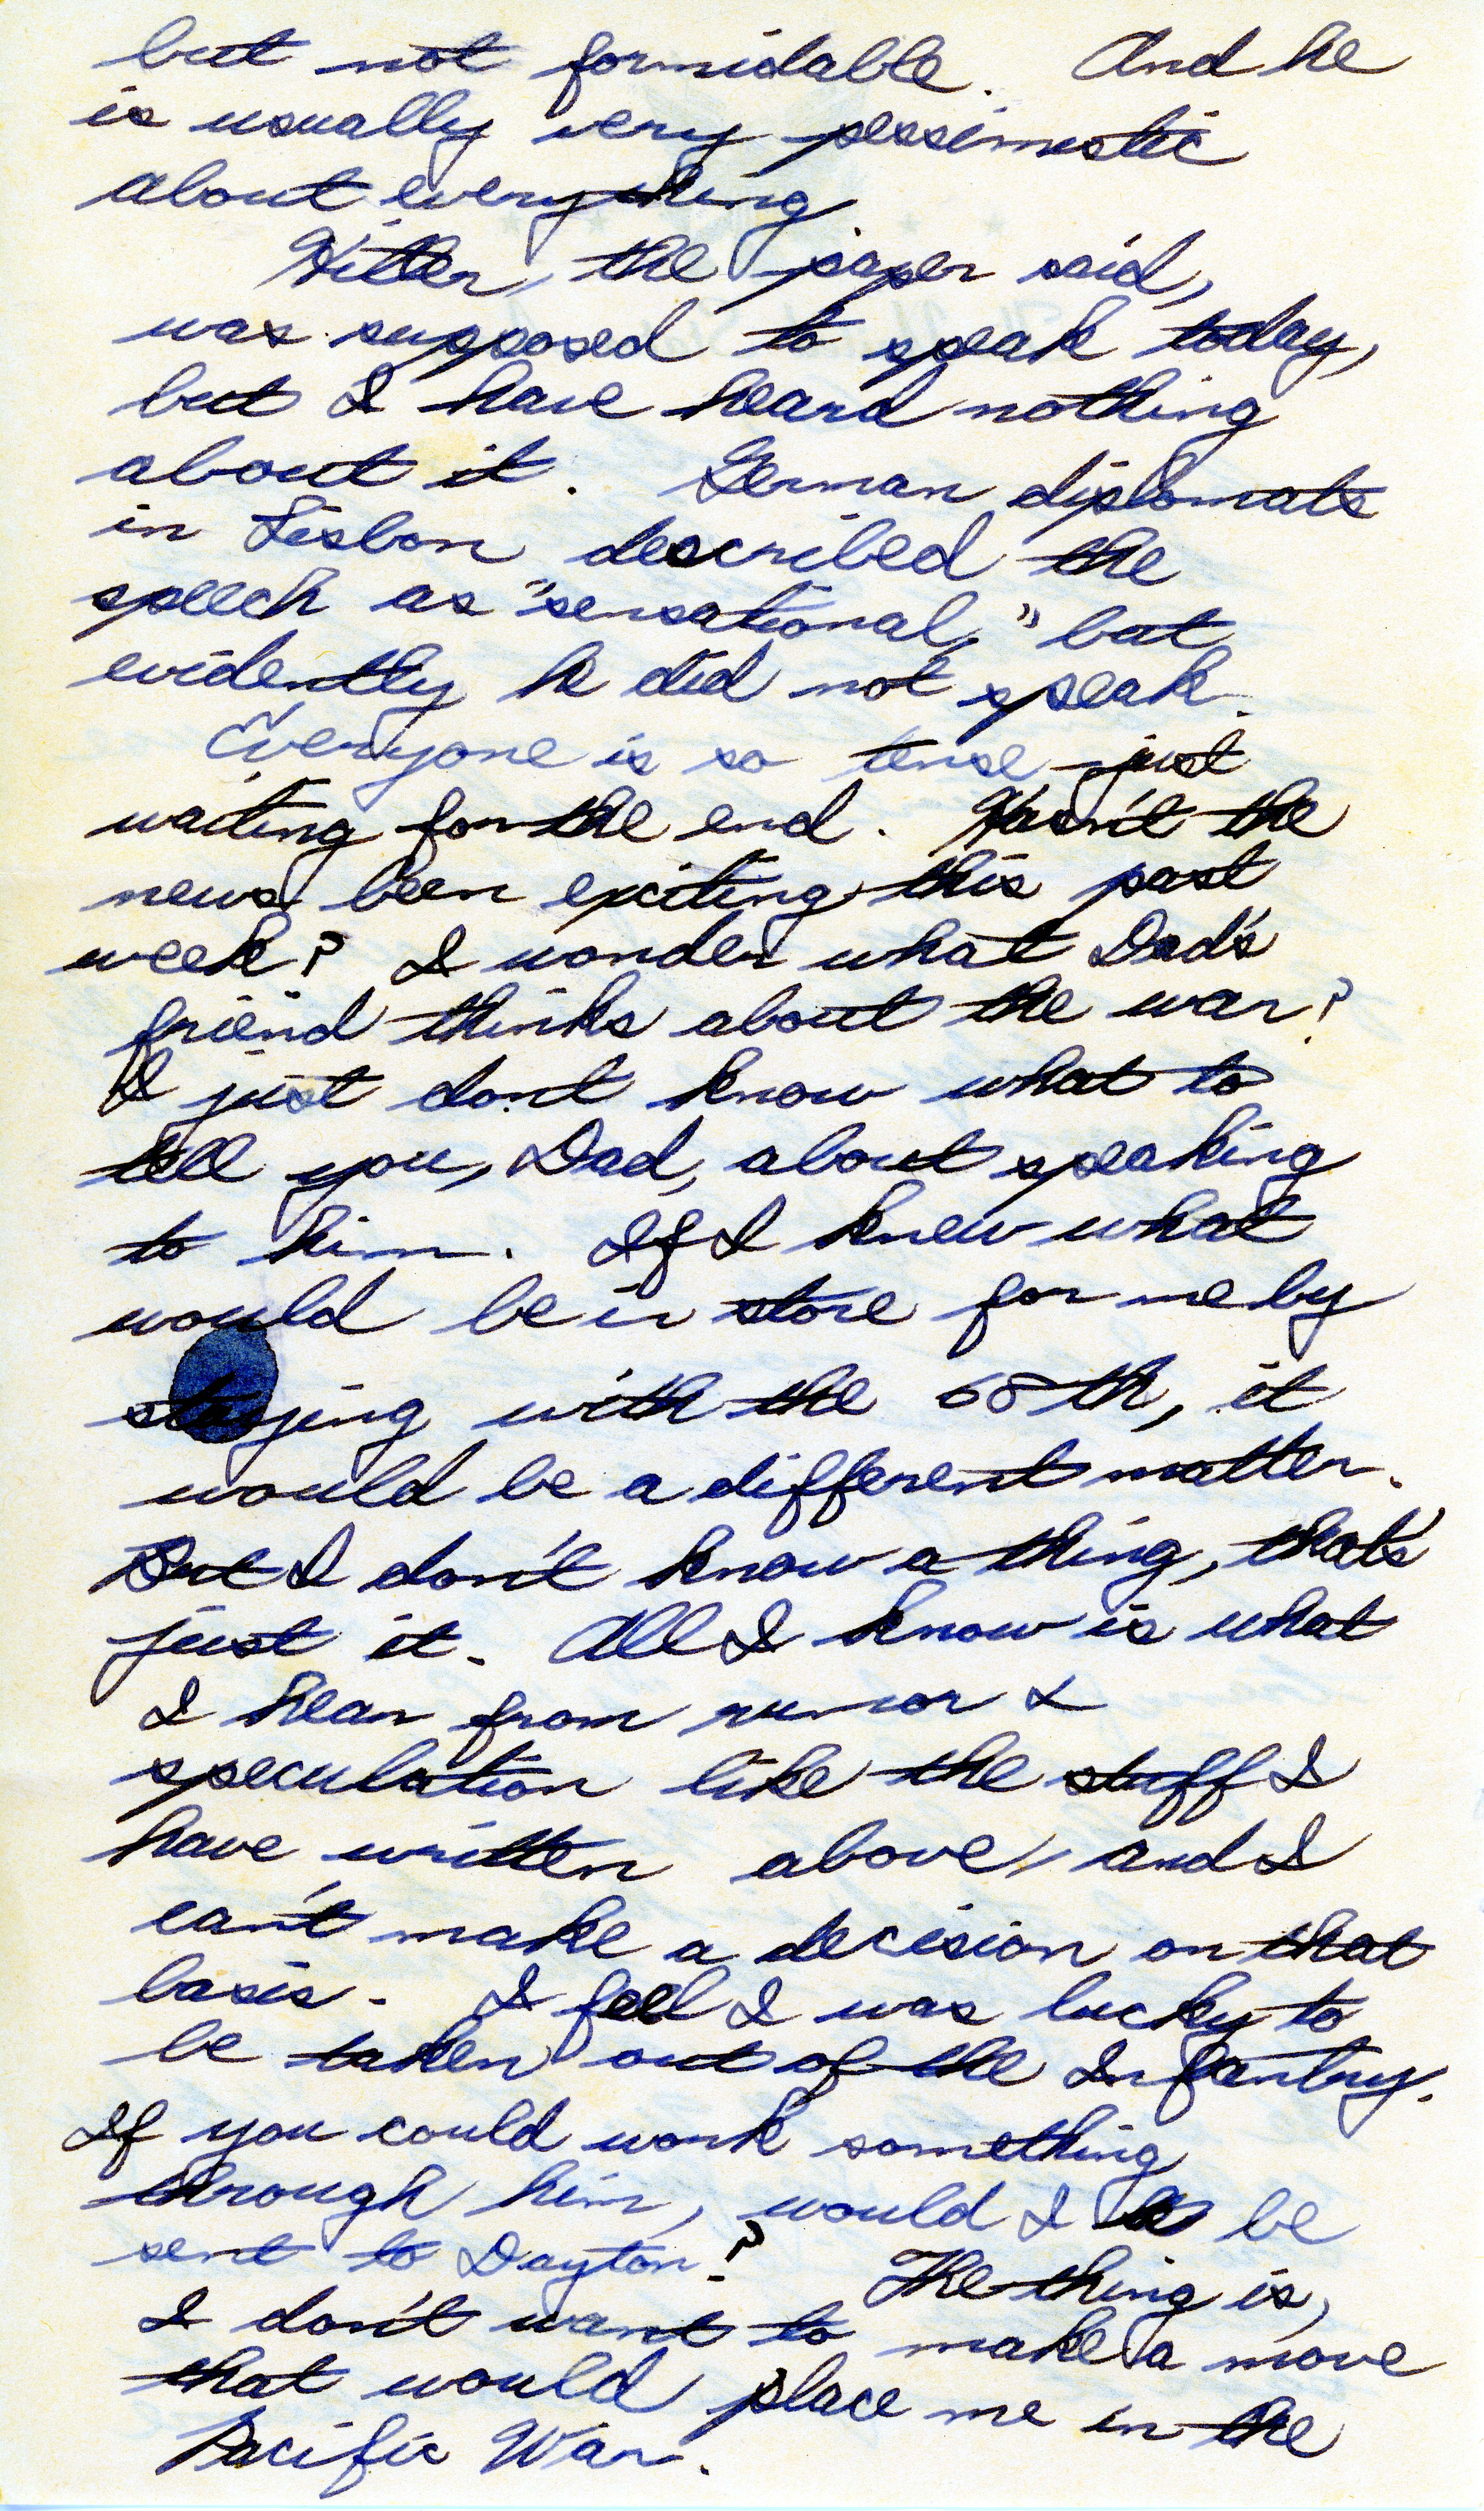 but not formidable. And he
is usually very pessimistic
about everything
Hitler, the paper said,
was supposed to speak today,
but I have heard nothing
about it. German diplomats
in Lisbon described the
speech as "sensational," but
evidently he did not speak.
Everyone is so tense just
waiting for the end. Hasn't the
news been exciting this past
week? I wonder what Dad's
friend thinks about the war?
I just don't know what to
tell you, Dad, about speaking
to him. If I knew what
would be in store for me by
staying with the 68th, it
would be a different matter.
But I don't know a thing, that's
just it. All I know is what
I hear from rumor &
speculation like the stuff I
have written above, and I
can't make a decision on that
basis. I feel I was lucky to
be taken out of the Infantry.
If you could work something
through him, would I be
sent to Dayton? The thing is,
I don't want to make a move
that would place me in the
Pacific War.